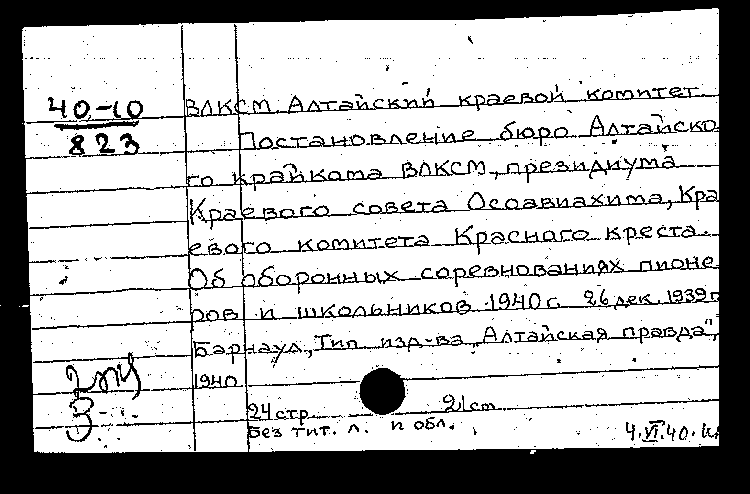 40-10
823
ВЛКСМ. Алтайский краевой комитет.
Постановление бюро Алтайско
го крайкома ВЛКСМ, президиума
Краевого совета Осоавиахима, Кра
евого комитета Красного креста.
Об оборонных соревнованиях пионе
ров и школьников 1940 г. 26 дек. 1939 г
Барнаул, Тип. изд-ва "Алтайская правда",
1940
24 стр. 21 см
Без тит. л. и обл.
4.VI.40.